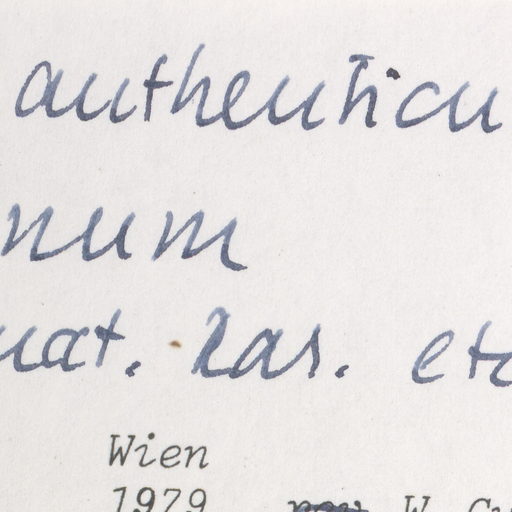 authenticu
num
uat. Ras. etc
Wien
1979 rev. W. Gu